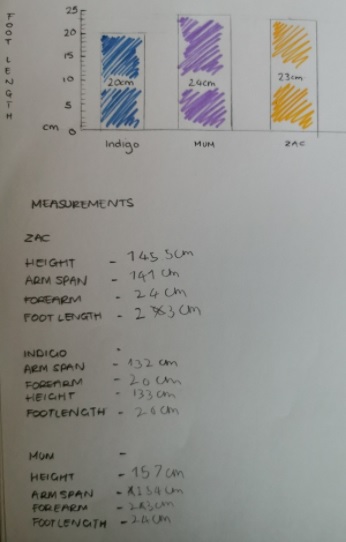 FOOT LENGTH
25
20
15
10
5
cm 0
20cm 24cm 23cm
Indigo MUM ZAC
MEASUREMENTS
ZAC
HEIGHT - 145.5cm
ARM SPAN - 141 cm
FOREARM - 24 cm
FOOT LENGTH - 23cm
INDIGO -
ARM SPAN - 132 cm
FOREARM - 20 cm
HEIGHT - 133cm
FOOTLENGTH - 20cm
MUM -
HEIGHT - 157cm
ARMSPAN - cm
FOREARM - cm
FOOTLENGTH - 24cm